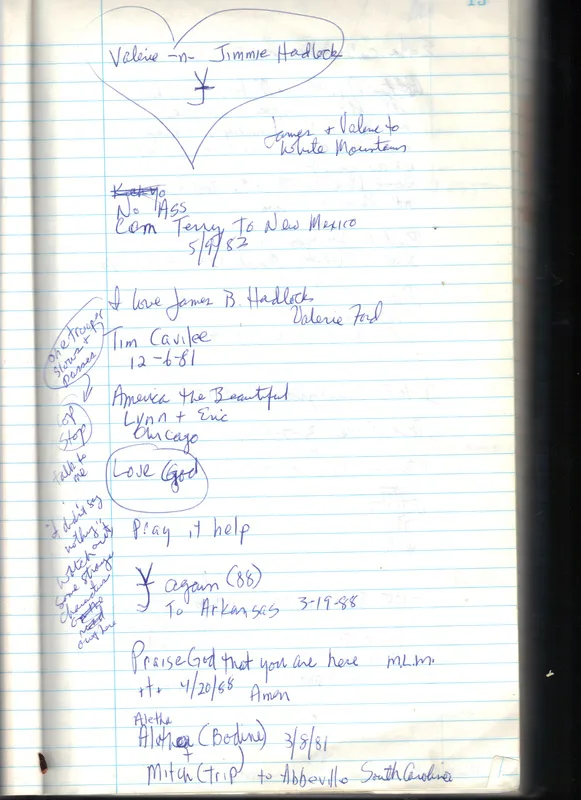 15
Valerie -n- Jimmie Hadlock
James + Valerie to
White Mountains
No Ass
Com Terry To New Mexico
5/9/82
I love James B. Hadlock
Valerie Ford
Tim Cavilee
12-6-81
America the Beautiful
Lynn + Eric
Chicago
Love God
Pray it help
again (88)
To Arkansas 3-19-88
Praise God that you are here M.L.M.
4/20/88 Amen
Aletha
(Bodine) 3/8/81
+
Mitch (Trip) to Abbeville South Carolina
one trooper
slows +
passes
Cop
Stop
talk to
me
if didn't say
nothing
watch out
some strange
characters
out here